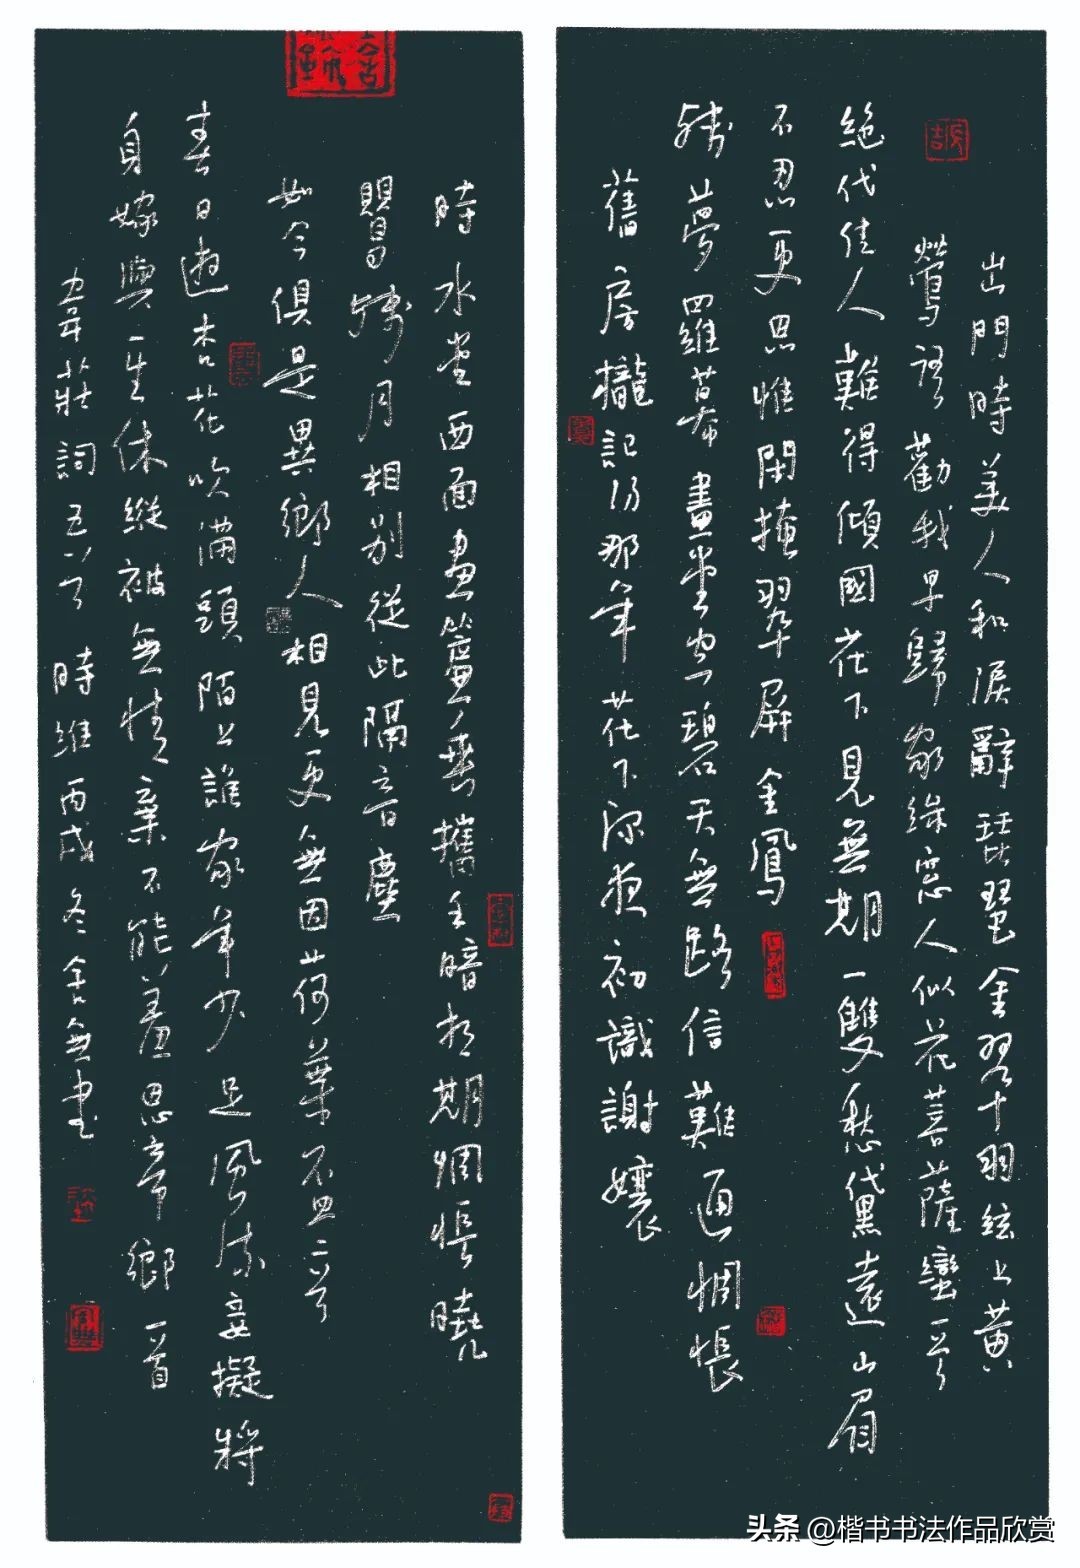 出門時美人和淚辭琵琶金翠羽絃上黃
鶯語勸我早歸家綠窓人似花菩薩蠻一首
絕代佳人難得傾國花下見無期一雙愁黛遠山眉
不忍更思惟閑掩翠屏金鳳
殘夢羅幕畫堂空碧天無路信難通惆悵
舊房櫳記得那年花下深夜初識謝孃
時水堂西面畫簾垂攜手暗相期惆悵曉
鶯殘月相別從此隔音塵
如今俱是異鄉人相見更無因荷葉盃二首
春日遊杏花吹滿頭陌上誰家年少足風流妾擬將
身嫁與一生休縱被無情棄不能羞思帝鄉一首
韋莊詞五首時維丙戌冬舍無書
头条@楷书书法作品欣赏